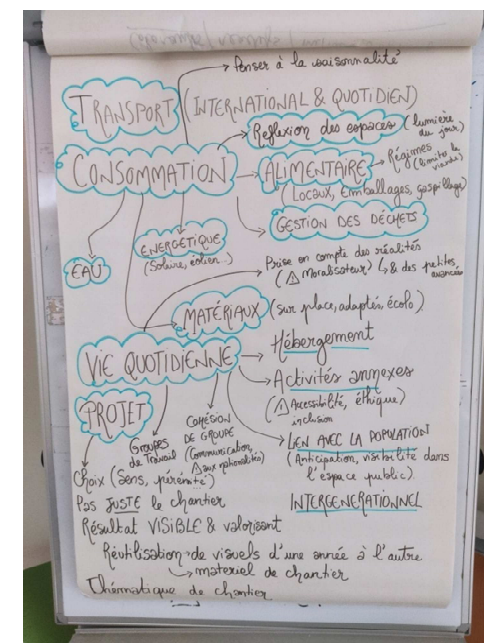 Penser à la saisonnalité
TRANSPORT (INTERNATIONAL & QUOTIDIEN)
Réflexion des espaces (lumière du jour)
CONSOMMATION
ALIMENTAIRE
Régimes (limiter la viande)
(Locaux, Emballages, gaspillage)
GESTION DES DÉCHETS
ENERGÉTIQUE
(Solaire, éolien...)
EAU
Prise en compte des réalités
(⚠ moralisateur) ↳ & des petites avancées
MATÉRIAUX (sur place, adaptés, écolo)
VIE QUOTIDIENNE
Hébergement
Activités annexes
(⚠ Accessibilité, éthique)
inclusion
PROJET
Groupes de travail
COHÉSION DE GROUPE
(Communication, ⚠ aux nationalités)
LIEN AVEC LA POPULATION
(Anticipation, visibilité dans
l'espace public).
INTERGENERATIONNEL
Choix (Sens, pérénité)
Pas JUSTE le chantier
Résultat VISIBLE & valorisant
Réutilisation de visuels d'une année à l'autre
materiel de chantier
Thématique de chantier